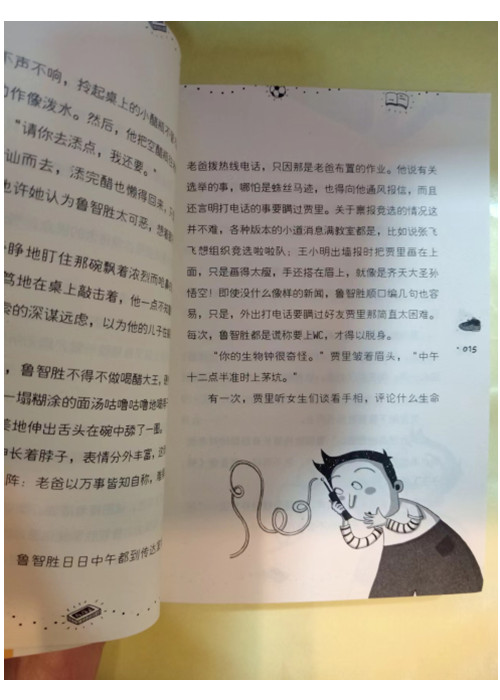 不声不响，拎起桌上的小醋瓶
动作像泼水。然后，他把空醋瓶
“请你去添点，我还要。”
讪而去，添完醋也懒得回来，
也许她认为鲁智胜太可恶，想
睁地盯住那碗飘着浓烈
笃地在桌上敲击着，他一点不
的深谋远虑，以为他的儿子
，鲁智胜不得不做喝醋大王，
一塌糊涂的面汤咕噜咕噜地
地伸出舌头在碗中舔了一圈。
长着脖子，表情分外丰富，
阵：老爸以万事皆知自称，
鲁智胜日日中午都到传达室
老爸拨热线电话，只因那是老爸布置的作业。他说有关
选举的事，哪怕是蛛丝马迹，也得向他通风报信，而且
还言明打电话的事要瞒过贾里。关于禀报竞选的情况这
并不难，各种版本的小道消息满教室都是，比如说张飞
飞想组织竞选啦啦队；王小明出墙报时把贾里画在上
面，只是画得太瘦，手还搭在眉上，就像是齐天大圣孙
悟空！即使没什么像样的新闻，鲁智胜顺口编几句也容
易，只是，外出打电话要瞒过好友贾里那简直太困难。
每次，鲁智胜都是谎称要上WC，才得以脱身。
“你的生物钟很奇怪。”贾里皱着眉头，“中午
十二点半准时上茅坑。”
有一次，贾里听女生们谈看手相，评论什么生命
015